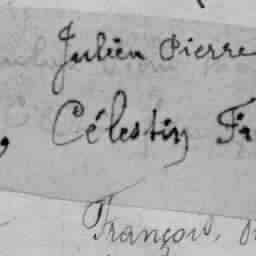 Julien Pierre
, Célestin
François,